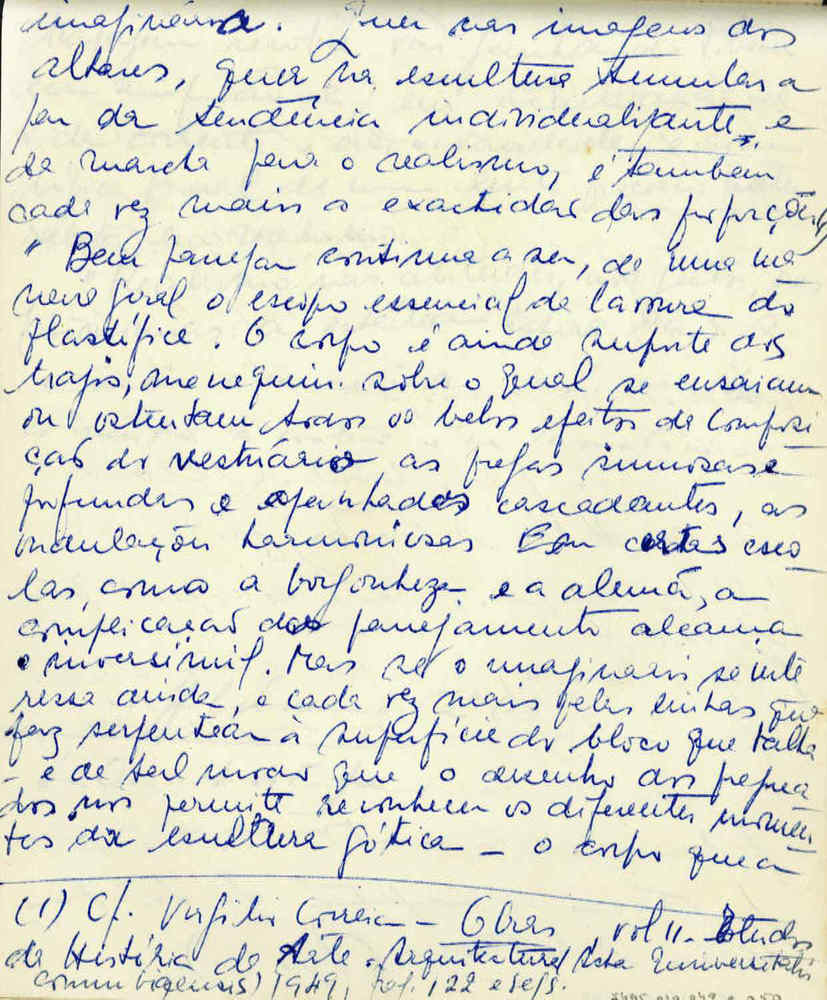 imaginária. Quer nas imagens dos
altares, quer na escultura tumular a
par da tendência individualizante, e
da marcha para o realismo, é também
cada vez mais a exactidão das proporções
" Bem panejar continua a ser, de uma ma
neira geral o escopo essencial da lavoura do
plastífice. O corpo é ainda suporte dos
trajos, manequim sobre o qual se ensaiam
ou ostentam todos os belos efeitos da composi
ção do vestuário as pregas sinuosas e
profundas e apanhados cascadeantes, as
ondulações harmoniosas Em certas esco
las, como a borgonheza e a alemã, a
complicação do panejamento alcança
o inverosimil. Mas se o imaginário se inte
ressa ainda, e cada vez mais pelas linhas que
faz serpentear à superfície do bloco que talha
- e de tal modo que o desenho dos preguea
dos nos permite reconhecer os diferentes momen
tos da escultura gótica - o corpo quer
(1) Cf. Vergílio Correia - Obras vol II - Estudos
de História da Arte - Arquitectura (Acta Universitatis
Conimbrigensis) 1949, pag. 122 e segs.